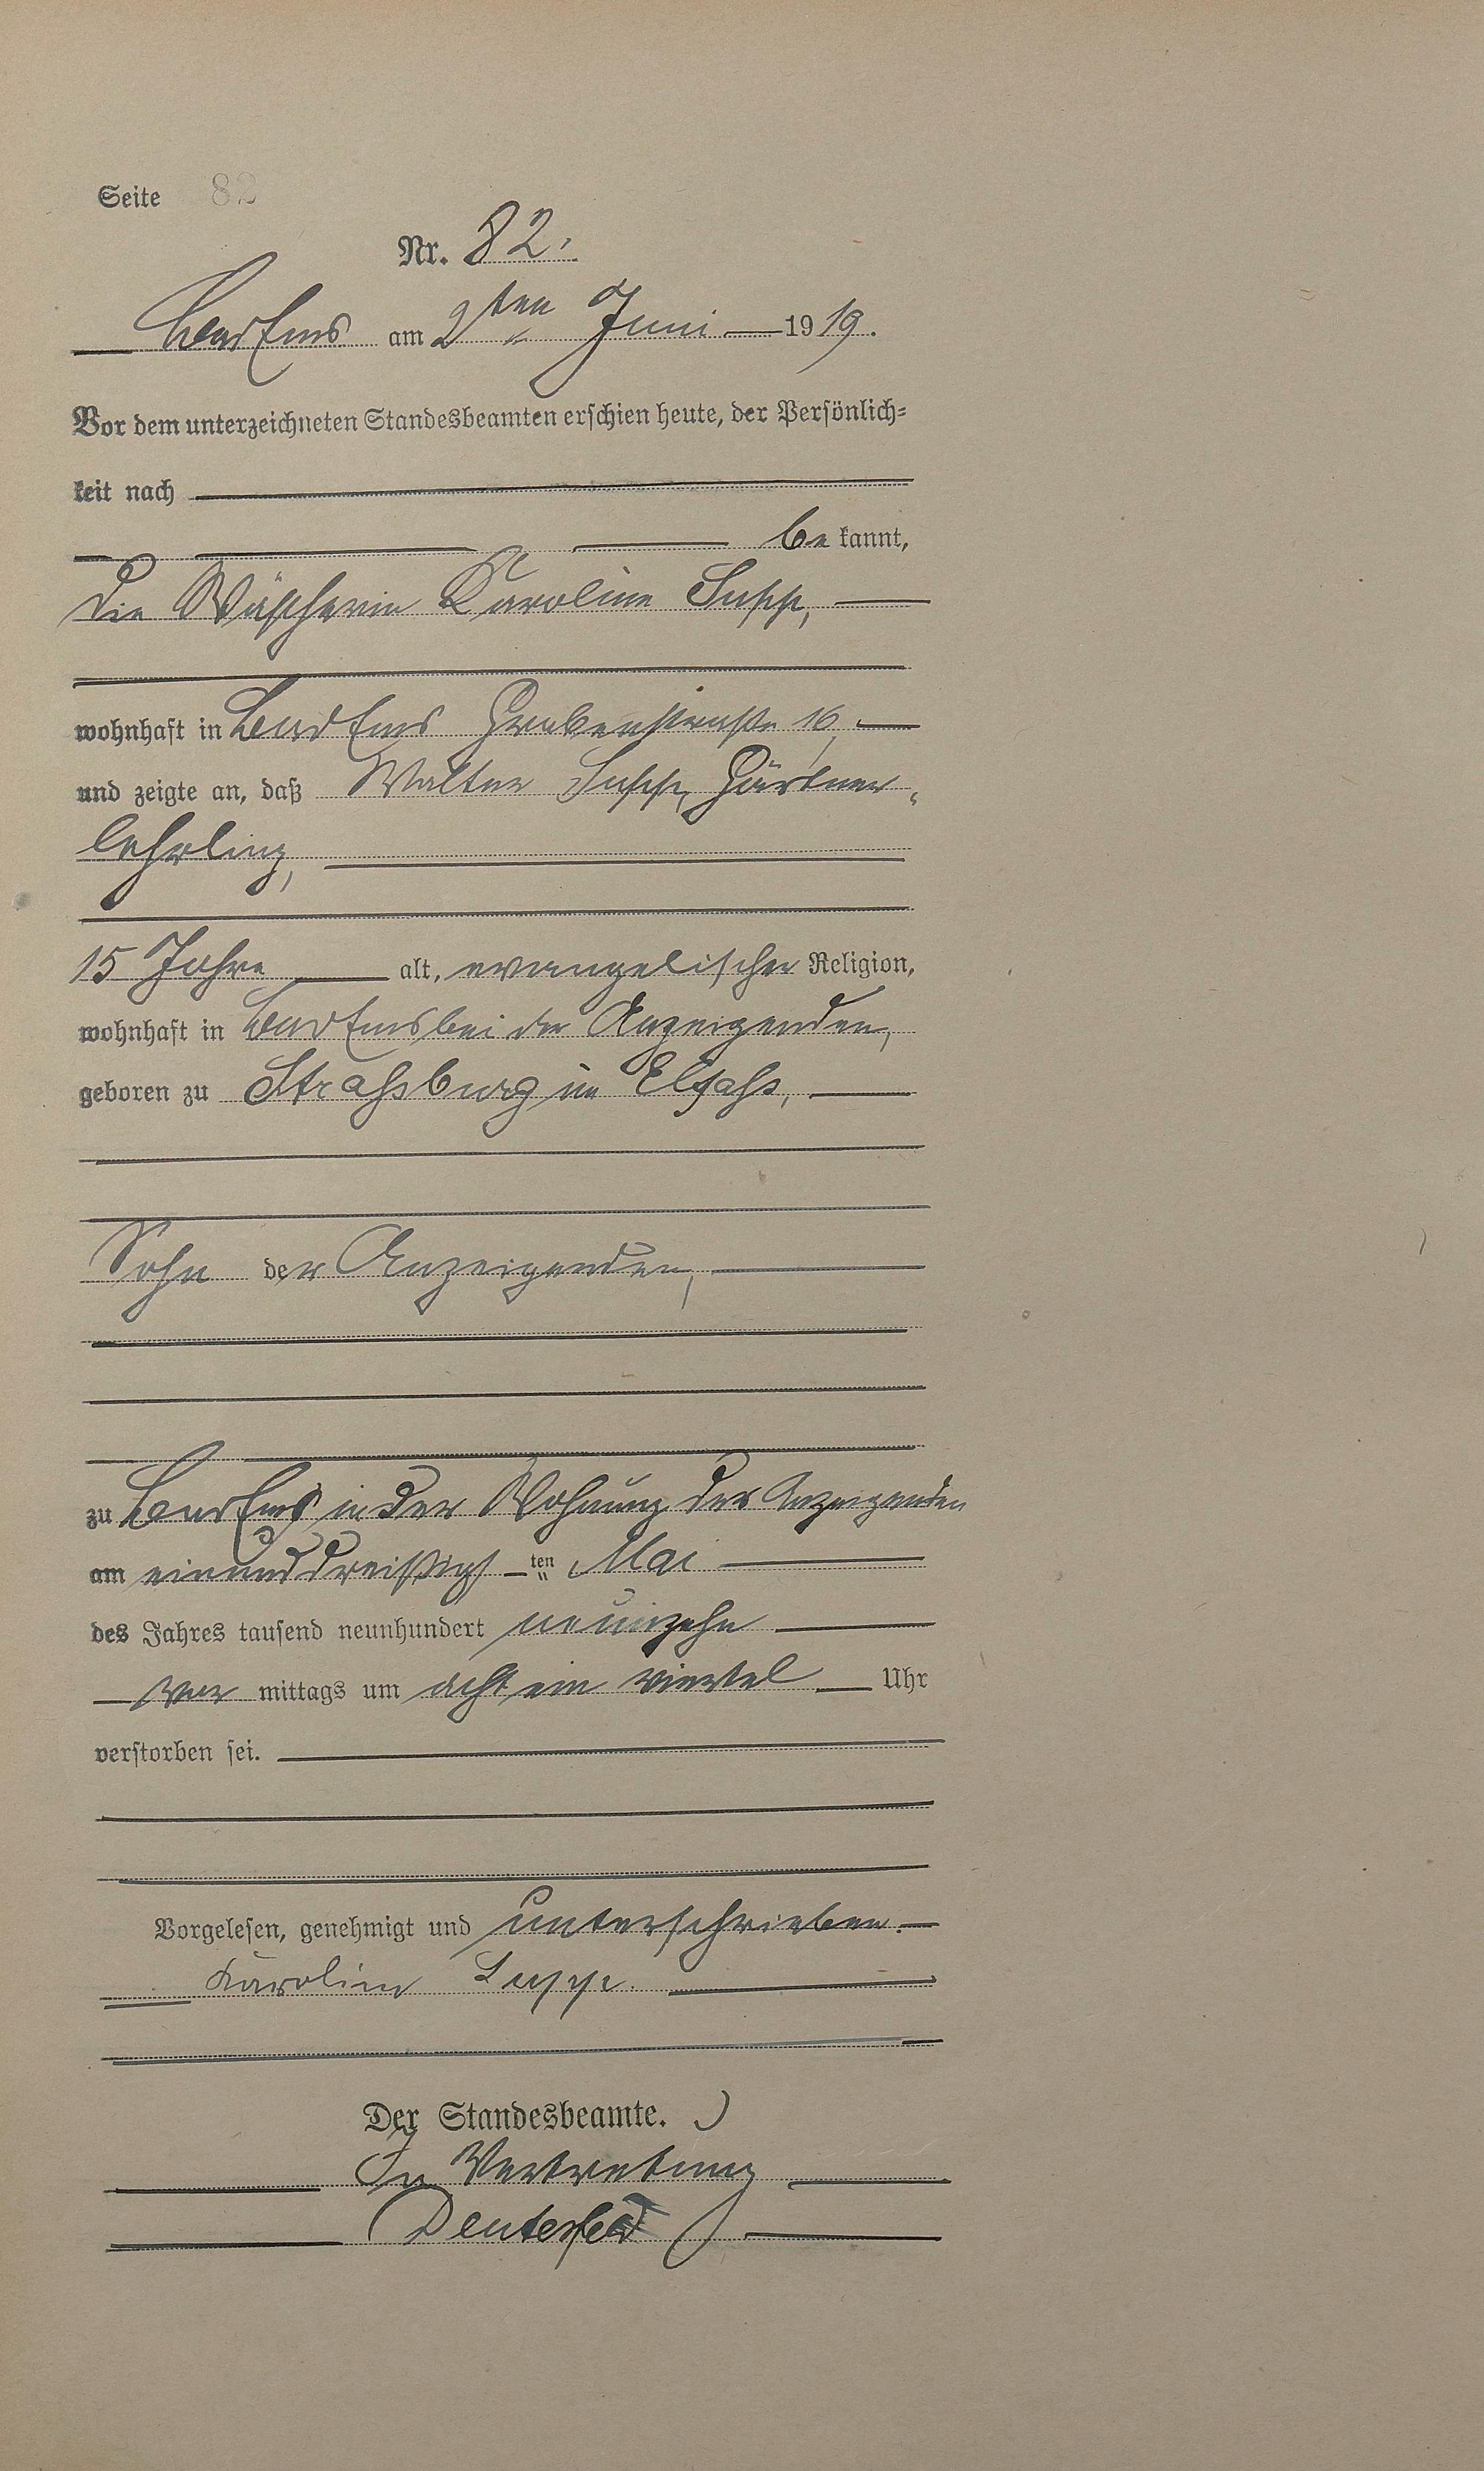 Seite 82
Nr. 82.
Bad Ems am 2ten Juni 1919.
Vor dem unterzeichneten Standesbeamten erschien heute, der Persönlich-
keit nach
be kannt,
die Wäscherin Karoline Supp,
wohnhaft in Bad Ems Grabenstraße 16,
und zeigte an, daß Walter Supp, Gärtner-
lehrling,
15 Jahre alt, evangelischer Religion,
wohnhaft in Bad Ems bei der Anzeigenden,
geboren zu Straßburg im Elsaß,
Sohn der Anzeigenden,
zu Bad Ems, in der Wohnung der Anzeigenden
am einunddreißigs ten Mai
des Jahres tausend neunhundert neunzehn
vor mittags um acht ein viertel Uhr
verstorben sei.
Vorgelesen, genehmigt und unterschrieben.
Karoline Supp.
Der Standesbeamte.
In Vertretung